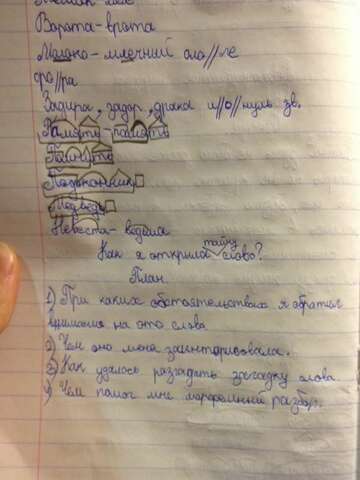 Ворота-врата
Молоко-млечный ога//ре
фо//ра
Задира, задор, драка и//о//нуль зв.
Память-память
Помнить
Подоконник
Медведь
Невеста-ведьма
тайну
Как я открыла слова?
План
1) При каких обстоятельствах я обратил
внимания на это слова
2) Чем оно меня заинтересовала.
3) Как удалось разгадать загадку слова
4) Чем помог мне морфемный разбор.